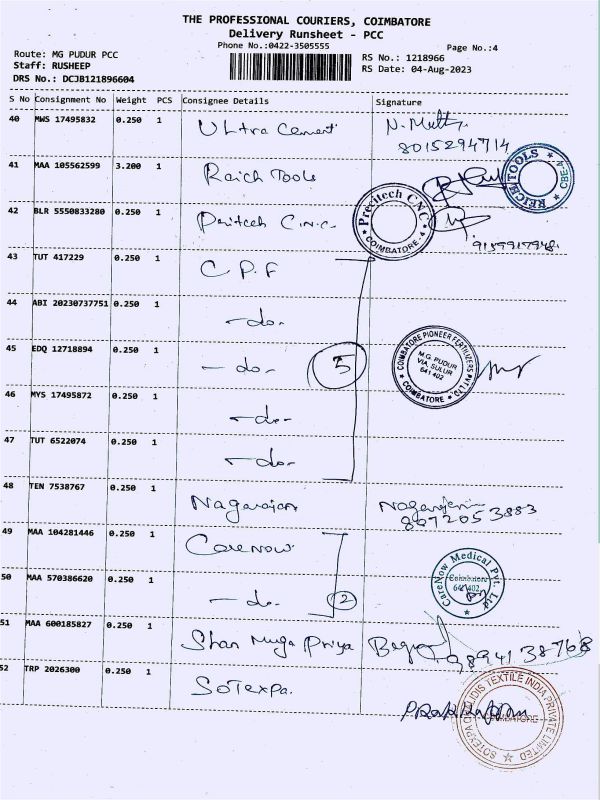 THE PROFESSIONAL COURIERS, COIMBATORE
Delivery Runsheet - PCC
Phone No.:0422-3505555
Page No.:4
Route: MG PUDUR PCC
RS No.: 1218966
Staff: RUSHEEP
RS Date: 04-Aug-2023
DRS No.: DCJB121896604
S No Consignment No Weight PCS Consignee Details Signature
40 MWS 17495832 0.250 1 Ultra Cement N. Muthu
8015294714
41 MAA 105562599 3.200 1 Raich Tools
REICH TOOLS ★ CBE-4 ★
42 BLR 5550833280 0.250 1 Peritech C.N.C.
Precitech CNC ★ COIMBATORE-4 ★
43 TUT 417229 0.250 1 C P F
44 ABI 20230737751 0.250 1 -do-
45 EDQ 12718894 0.250 1 -do- 5
COIMBATORE PIONEER FERTILIZERS PVT LTD. ★ COIMBATORE ★
M.G. PUDUR
VIA, SULUR
641 402
46 MYS 17495872 0.250 1 -do-
47 TUT 6522074 0.250 1 -do-
48 TEN 7538767 0.250 1 Nagarajan Nagarajan
8072053883
49 MAA 104281446 0.250 1 Carenow
50 MAA 570386620 0.250 1 -do- 2
CareNow Medical Pvt. Ltd ★
Coimbatore
641 402
51 MAA 600185827 0.250 1 Shan Muga Priya
9894138768
52 TRP 2026300 0.250 1 Sotexpa.
TEXTILE INDIA PRIVATE LIMITED ★
COIMBATORE